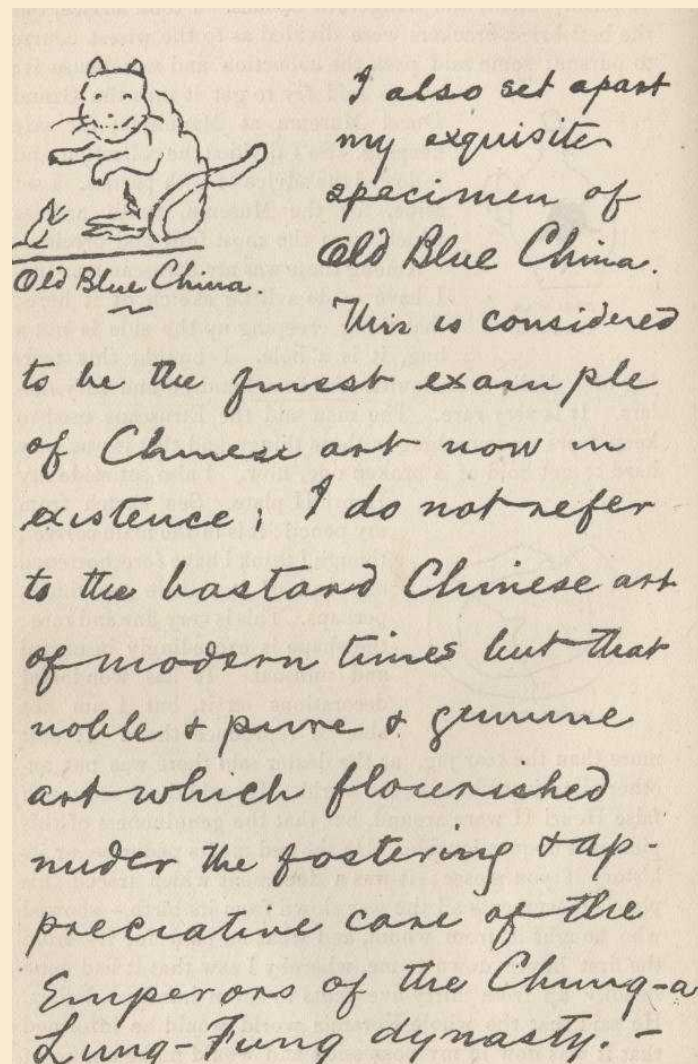 I also set apart
my exquisite
specimen of
Old Blue China.
Old Blue China.
This is considered
to be the finest example
of Chinese art now in
existence; I do not refer
to the bastard Chinese art
of modern times but that
noble & pure & genuine
art which flourished
under the fostering & ap-
preciative care of the
Emperors of the Chung-a
Lung-Fung dynasty. –